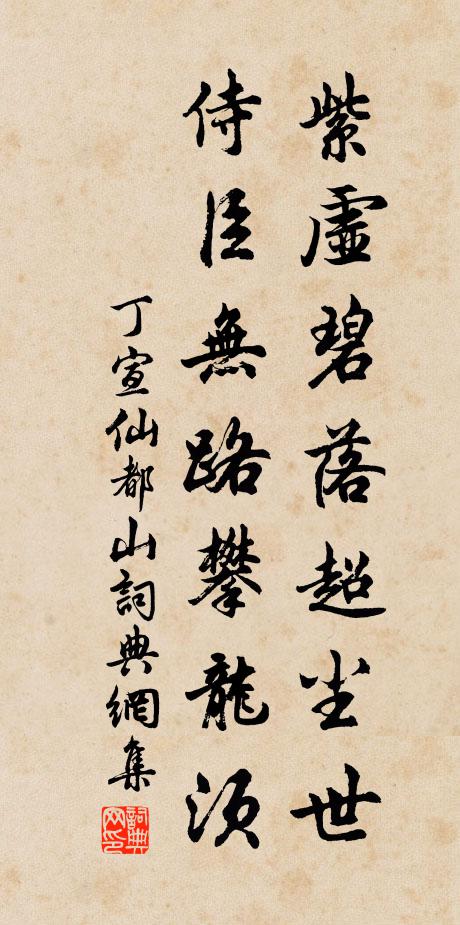 紫虛碧落超尘世
侍臣無路攀龍須
丁宣仙都山詞典網集
詞典网印